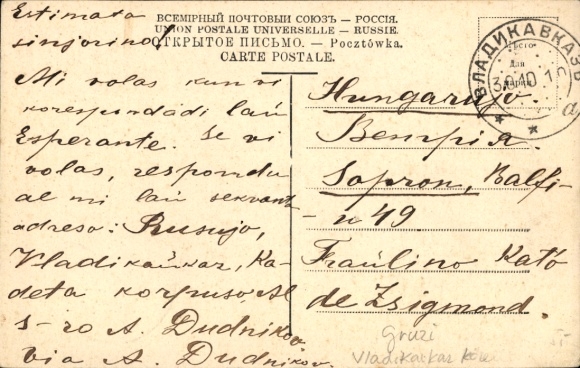 Estimata
sinjorino!
ВСЕМІРНЫЙ ПОЧТОВЫЙ СОЮЗЪ. — РОССІЯ.
UNION POSTALE UNIVERSELLE. — RUSSIE.
ОТКРЫТОЕ ПИСЬМО. — Pocztówka.
CARTE POSTALE.
Mi volas kun vi
korespondadi laŭ
Esperante. Se vi
volas, respondu
al mi laŭ sekvanta
adreso: Rusujo,
Vladikaŭkaz, Ka-
deta korpuso, Al
S-ro A. Dudnikov
via A. Dudnikov.
Место
для
марки
ВЛАДИКАВКАЗЪ
3.9.10
а
Hungarujo.
Венгрія.
Sopron, Balfi-
-u 49
Fraŭlino Kató
de Zsigmond.
Gruzi
Vladikaukaz